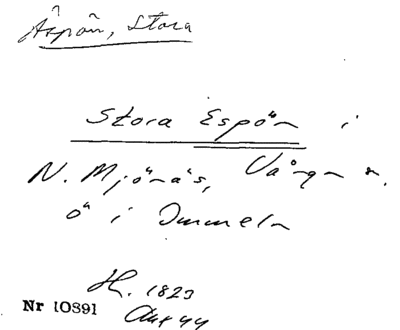 Äspön, Stora
Stora Espön i
N. Mjönäs, Vånga sn.
ö i Immeln
H. 1823
Nr 10891